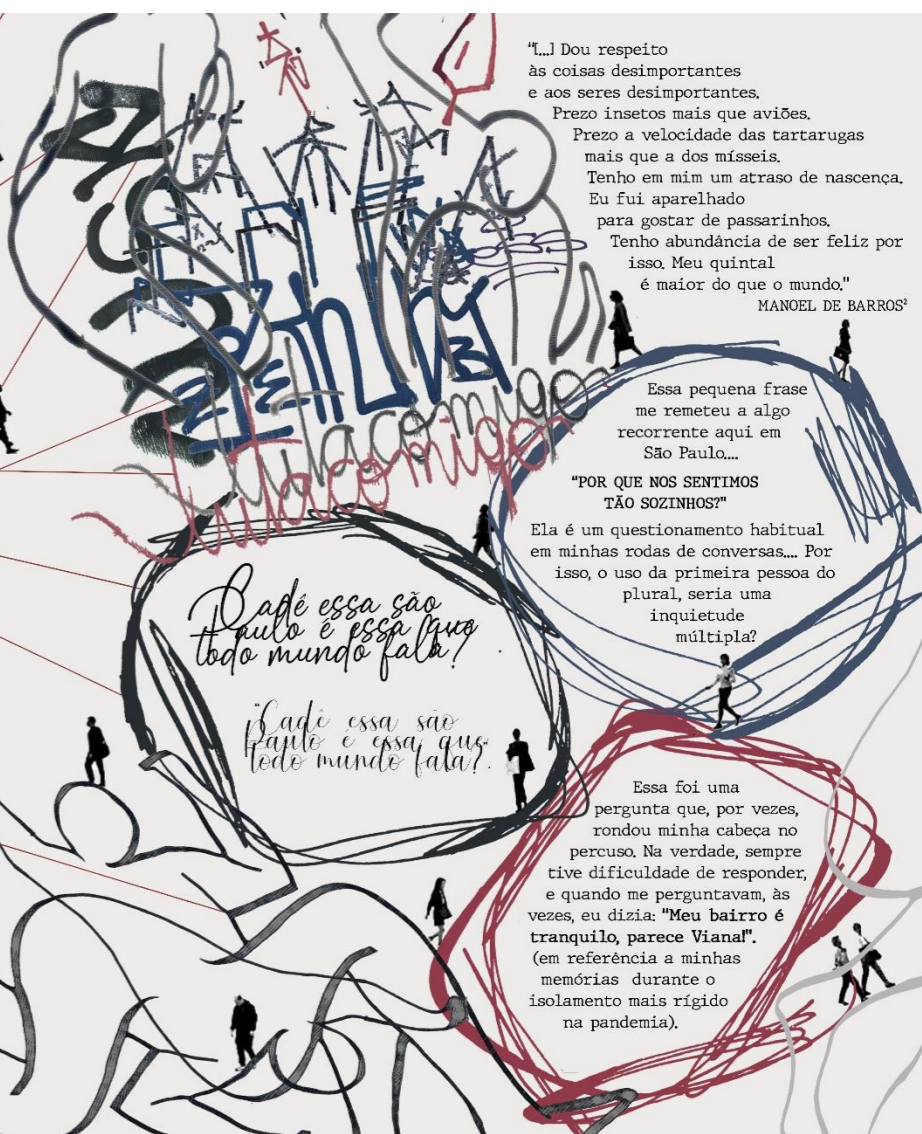 "[...] Dou respeito
às coisas desimportantes
e aos seres desimportantes.
Prezo insetos mais que aviões.
Prezo a velocidade das tartarugas
mais que a dos mísseis.
Tenho em mim um atraso de nascença.
Eu fui aparelhado
para gostar de passarinhos.
Tenho abundância de ser feliz por
isso. Meu quintal
é maior do que o mundo."
MANOEL DE BARROS²
lutacomigo
lutacomigo
Essa pequena frase
me remeteu a algo
recorrente aqui em
São Paulo....
"POR QUE NOS SENTIMOS
TÃO SOZINHOS?"
Ela é um questionamento habitual
em minhas rodas de conversas.... Por
isso, o uso da primeira pessoa do
plural, seria uma
inquietude
múltipla?
Cadê essa são
paulo é essa que
todo mundo fala?
"Cadê essa são
paulo é essa que
todo mundo fala?".
Essa foi uma
pergunta que, por vezes,
rondou minha cabeça no
percuso. Na verdade, sempre
tive dificuldade de responder,
e quando me perguntavam, às
vezes, eu dizia: "Meu bairro é
tranquilo, parece Viana!".
(em referência a minhas
memórias durante o
isolamento mais rígido
na pandemia).